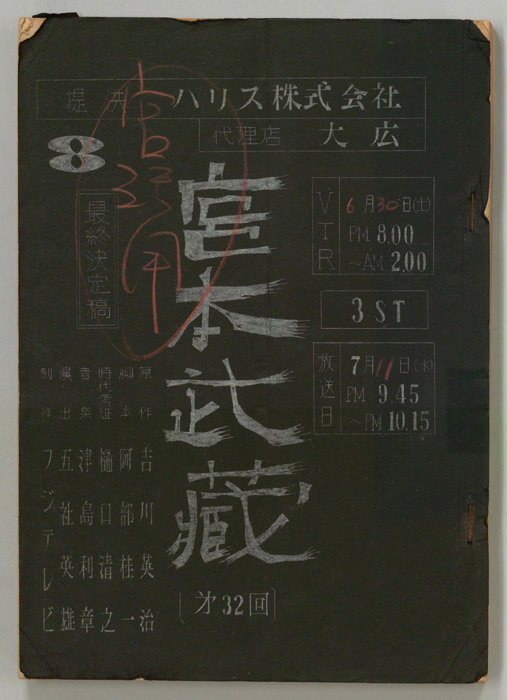 提供 ハリス株式会社
代理店 大広
8
最終決定稿
宮本武蔵
第32回
VTR
6月30日(土)
PM 8.00
~AM 2.00
3ST
放送日
7月11日(水)
PM 9.45
~PM 10.15
原作 吉川英治
脚本 阿部桂一
時代考証 樋口清之
音楽 津島利章
演出 五社英雄
制作 フジテレビ